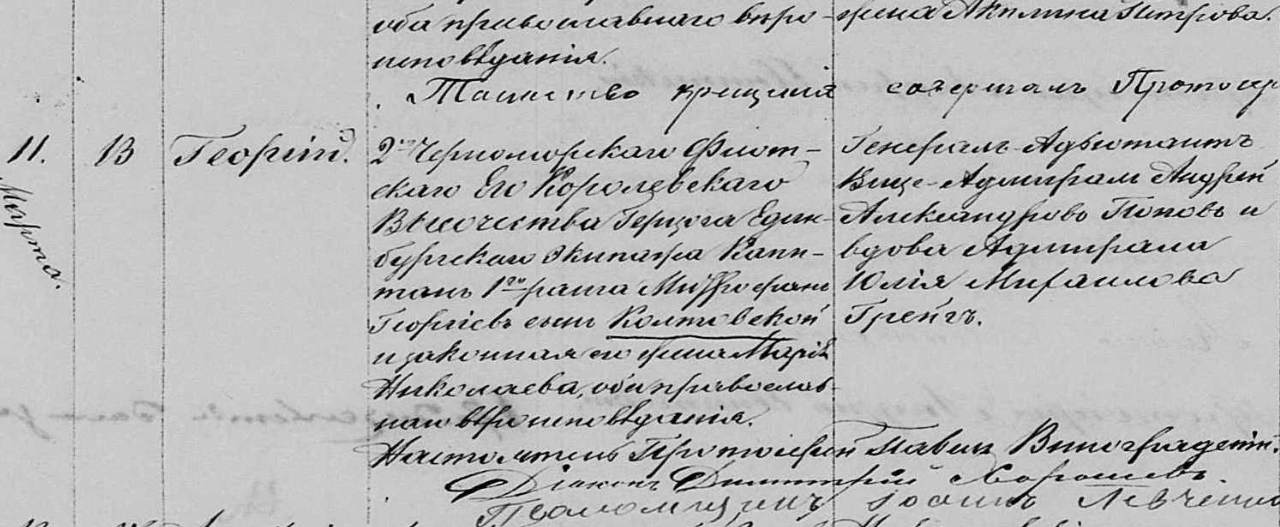 оба православнаго вѣро- жена Акилина Петрова.
исповѣданія.
Таинство крещенія совершалъ Протоіер
11. 13 Георгій. 2го Черноморскаго Флот- Генералъ-Адъютантъ
скаго Его Королевскаго Вице-Адмиралъ Андрей
Высочества Герцога Един- Александровъ Поповъ и
бургскаго Экипажа Капи- вдова Адмирала
Марта. танъ 1го ранга Митрофанъ Юлія Михаилова
Георгіевъ сынъ Колтовской Грейгъ.
и законная его жена Марія
Николаева, оба православ-
наго вѣроисповѣданія.
Настоятель Протоіерей Павелъ
Діаконъ Димитрій
Псаломщикъ Іоаннъ Левченко